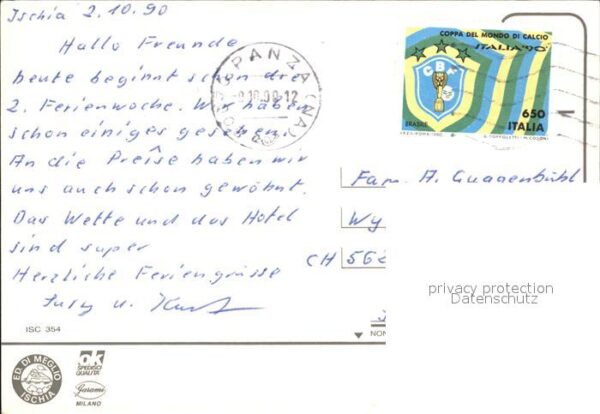 Ischia 2.10.90
Hallo Freunde
heute beginnt schon die
2. Ferienwoche. Wir haben
schon einiges gesehen.
An die Preise haben wir
uns auch schon gewöhnt.
Das Wette und das Hotel
sind super
Herzliche Feriengrüsse
Susy u. Kurt
ISC 354
ED. DI MEGLIO
ISCHIA
ok
SPEDISCI
QUALITÀ
Garami
MILANO
PANZA (NA)
COPPA DEL MONDO DI CALCIO
ITALIA '90
CBF
BRASILE
650
ITALIA
Fam. A. Guggenbühl
Wy
CH 562
NON
privacy protection
Datenschutz